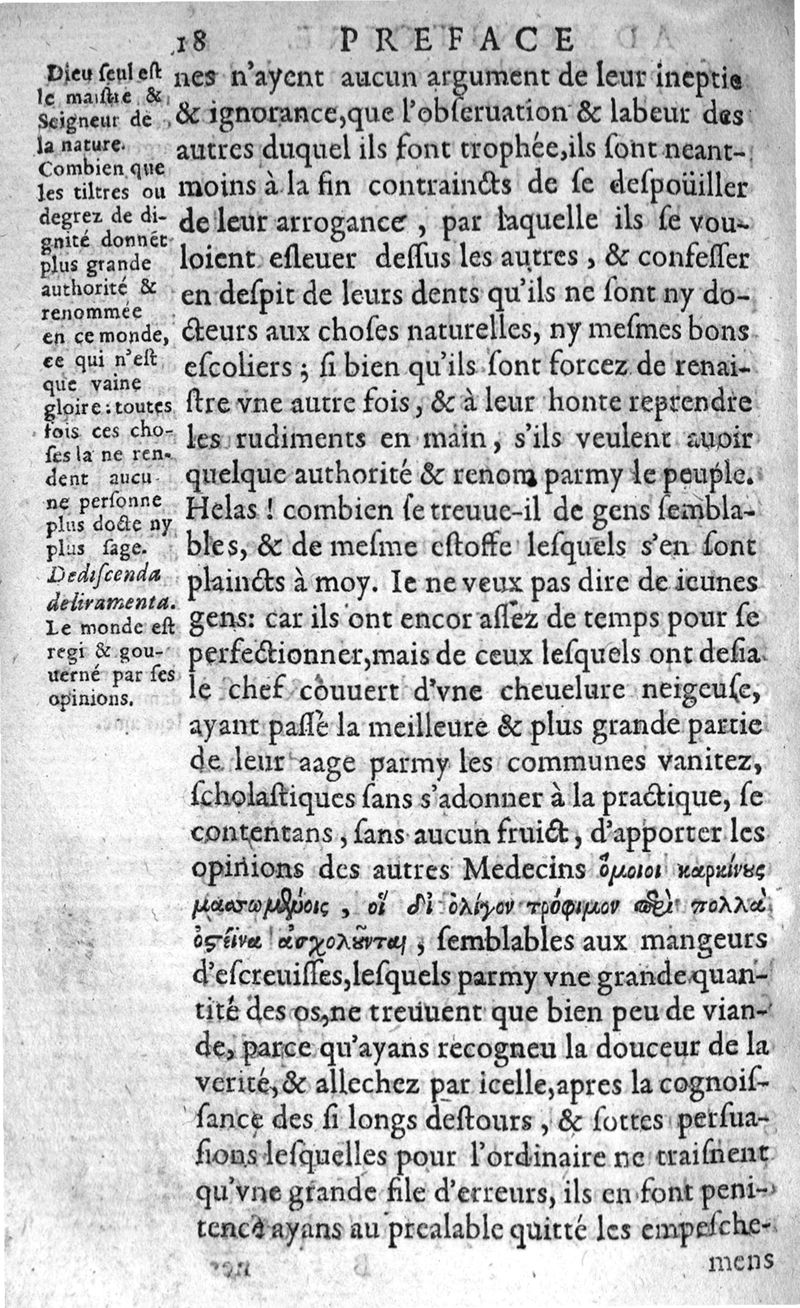 18 PREFACE
Dieu ſeul eſt
le maiſtre &
Seigneur de
la nature.
Combien que
les tiltres ou
degrez de di-
gnité donnét
plus grande
authorité &
renommée
en ce monde,
ce qui n'eſt
que vaine
gloire: toutes
fois ces cho-
ſes la ne ren-
dent aucu-
ne perſonne
plus docte ny
plus ſage.
Dediſcenda
deliramenta.
Le monde eſt
regi & gou-
uerné par ſes
opinions.
nes n'ayent aucun argument de leur ineptie
& ignorance, que l'obſeruation & labeur des
autres duquel ils font trophée, ils ſont neant-
moins à la fin contraincts de ſe deſpoüiller
de leur arrogance, par laquelle ils ſe vou-
loient eſleuer deſſus les autres, & confeſſer
en deſpit de leurs dents qu'ils ne ſont ny do-
cteurs aux choſes naturelles, ny meſmes bons
eſcoliers; ſi bien qu'ils ſont forcez de renai-
ſtre vne autre fois, & à leur honte reprendre
les rudiments en main, s'ils veulent auoir
quelque authorité & renom parmy le peuple.
Helas! combien ſe treuue-il de gens ſembla-
bles, & de meſme eſtoffe leſquels s'en ſont
plaincts à moy. Ie ne veux pas dire de ieunes
gens: car ils ont encor aſſez de temps pour ſe
perfectionner, mais de ceux leſquels ont deſia
le chef couuert d'vne cheuelure neigeuſe,
ayant paſſé la meilleure & plus grande partie
de leur aage parmy les communes vanitez,
ſcholaſtiques ſans s'adonner à la practique, ſe
contentans, ſans aucun fruict, d'apporter les
opinions des autres Medecins ὅμοιοι καρκίνους
μασωμένοις, οἳ δι' ὀλίγον τρόφιμον περὶ πολλὰ
ὀστέϊνα ἀσχολοῦνται, ſemblables aux mangeurs
d'eſcreuiſſes, leſquels parmy vne grande quan-
tité des os, ne treuuent que bien peu de vian-
de, parce qu'ayans recogneu la douceur de la
verité, & allechez par icelle, apres la cognoiſ-
ſance des ſi longs deſtours, & ſottes perſua-
ſions leſquelles pour l'ordinaire ne traiſnent
qu'vne grande file d'erreurs, ils en font peni-
tence ayans au prealable quitté les empeſche-
mens